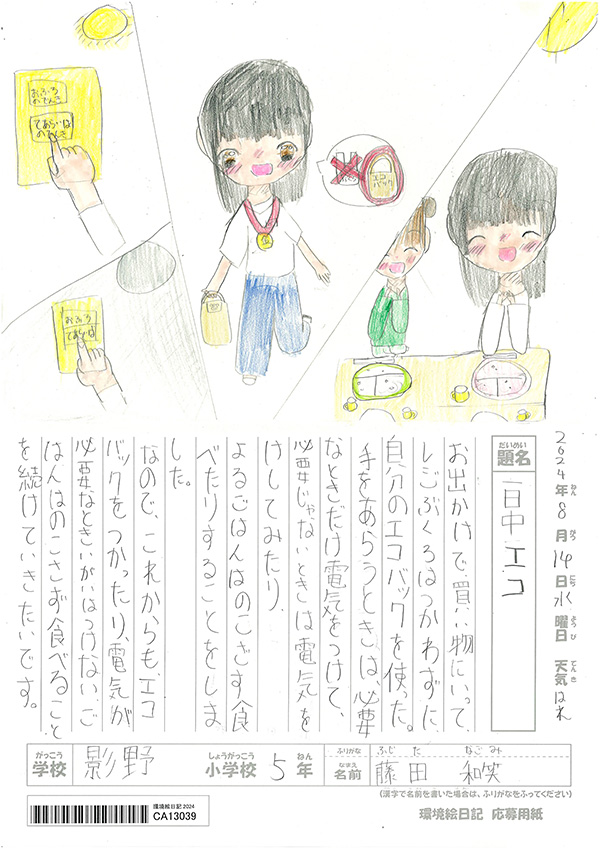 おふろ
のでんき
てあらいば
のでんき
おふろ
てあらいば
エコ
バック
2024年8月14日水曜日 天気はれ
ねん
がつ
にち
ようび
てんき
だいめい
題名
一日中エコ
お出かけで、買い物にいって
レジぶくろはつかわずに
自分のエコバックを使った。
手をあらうときは必要
なときだけ電気をつけて、
必要じゃないときは電気を
けしてみたり、
よるごはんはのこさず食
べたりすることをしま
した。
なので、これからも、エコ
バックをつかったり、電気が
必要なときいがいはつけない、ご
はんはのこさず食べること
を続けていきたいです。
がっこう
学校
影野
しょうがっこう
小学校
5
ねん
年
ふりがな
ふじ た なごみ
なまえ
名前
藤田 和笑
(漢字で名前を書いた場合は、ふりがなをふってください)
環境絵日記 2024
CA13039
環境絵日記 応募用紙